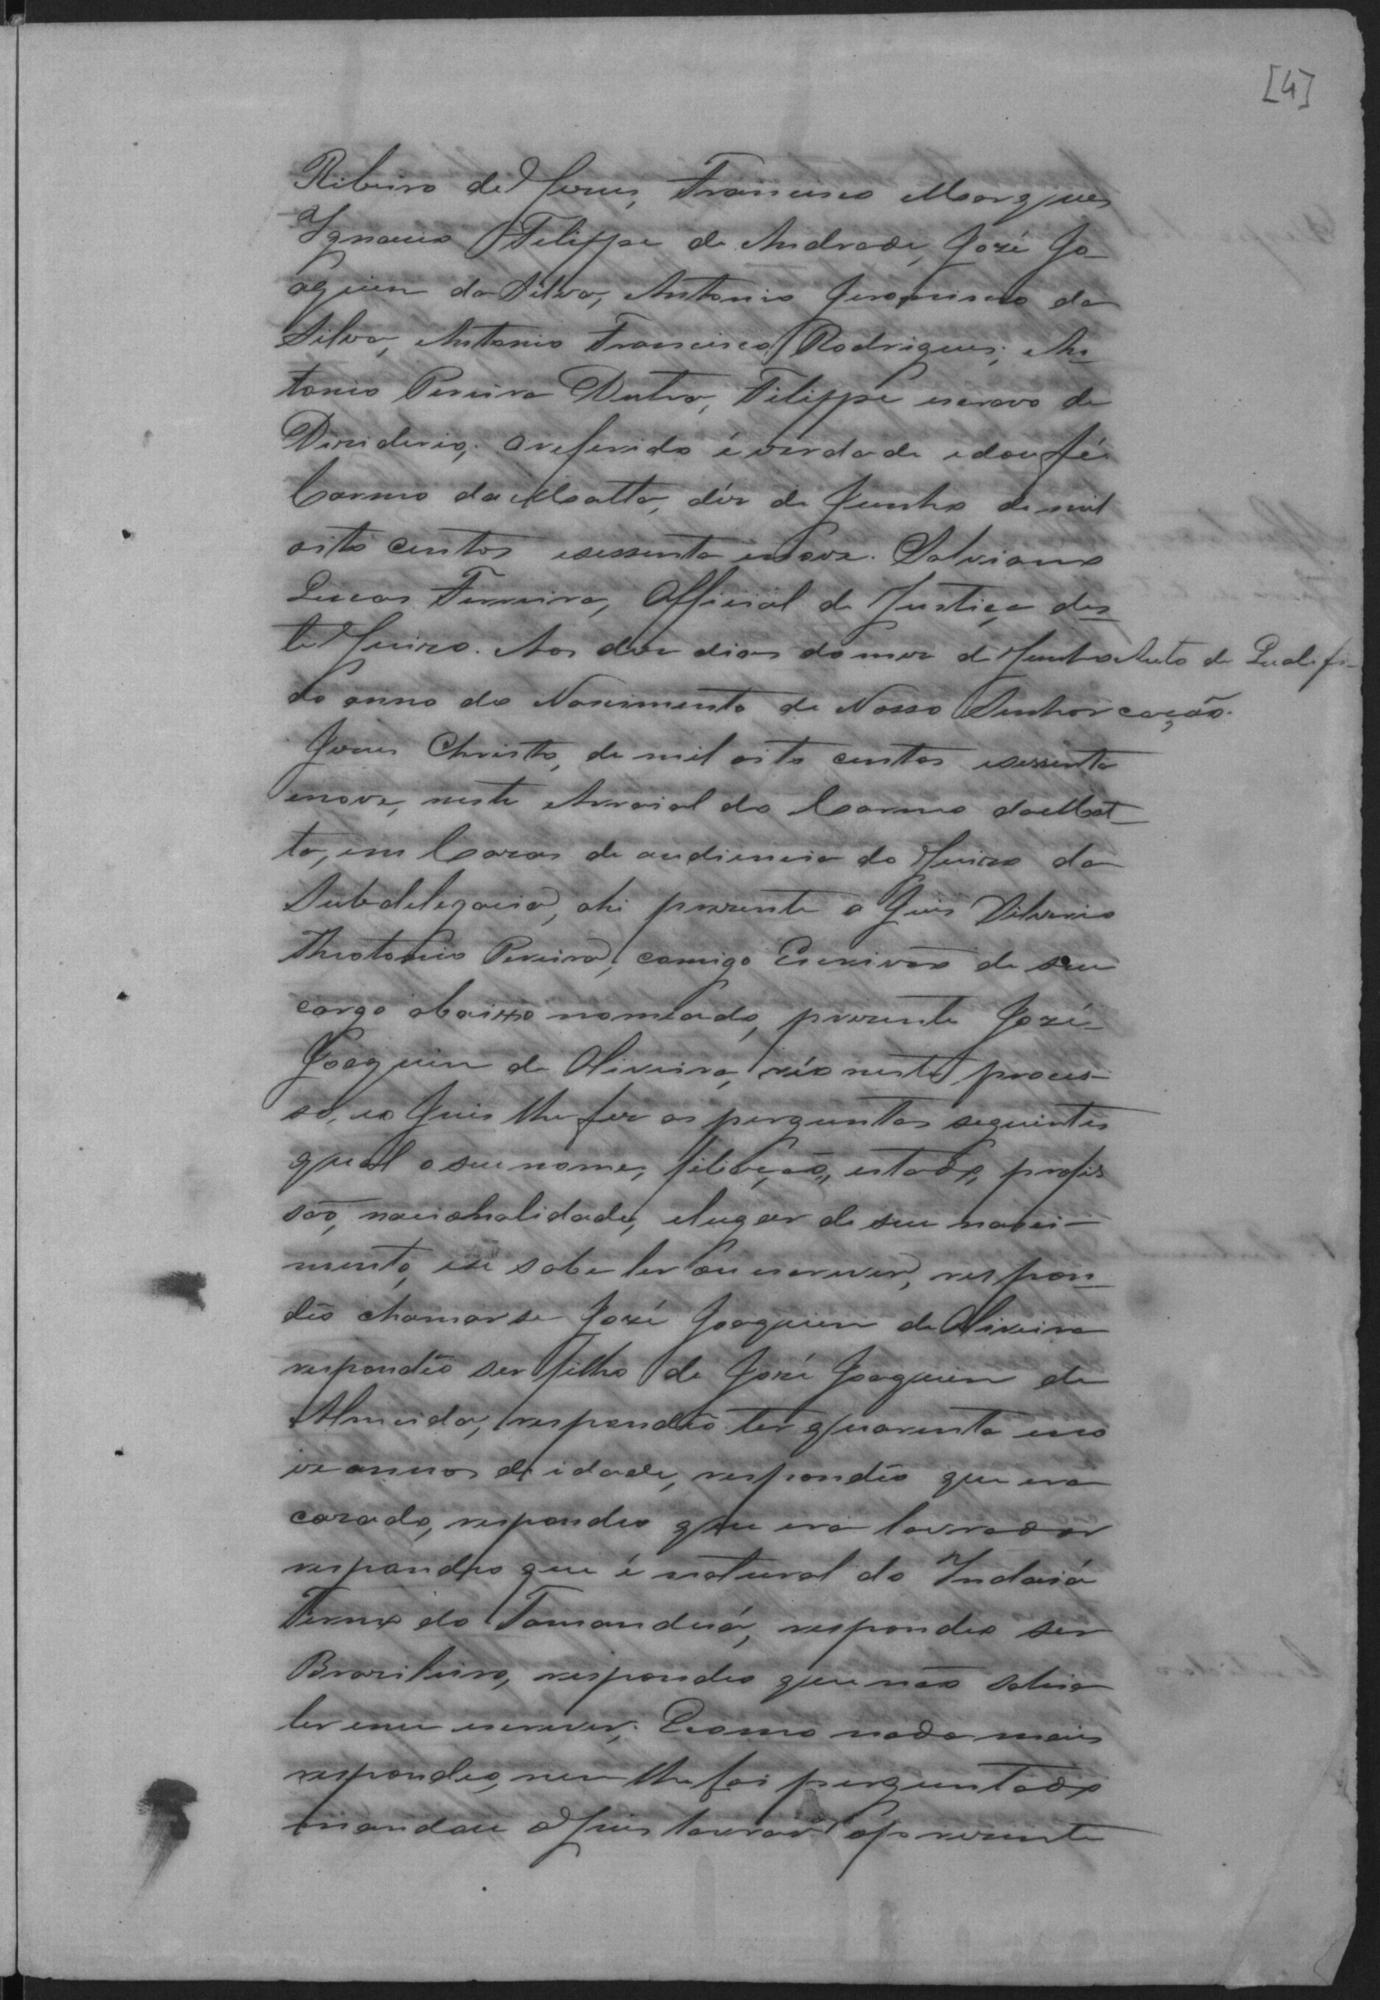 [4]
Ribeiro de Jesus, Francisco Marques
Ignacio Filippe de Andrade, José Jo-
aquim da Silva, Antonio Jeronimo da
Silva, Antonio Francisco Rodrigues, An-
tonio Pereira Dutra, Filippe escravo de
Deziderio; o referido é verdade e dou fé
Carmo da Matta, déz de Junho de mil
oito centos esessenta enove. Salviano
Lucas Ferreira, Official de Justiça des-
te Juizo. Aos dez dias do mez de Junho
Auto de Qualifi-
cação.
do anno do Nascimento de Nosso Senhor
Jesus Christo, de mil oito centos esessenta
enove, neste Arraial do Carmo da Mat-
ta, em Cazas de audiencia do Juizo da
Subdelegacia, ahi prezente o Juis
Theotonio Pereira, comigo Escrivão de seu
cargo abaixo nomeado, prezente José
Joaquim de Oliveira, réo neste proces-
so, eo Juis lhe fez as perguntas seguintes
qual o seu nome, filiação, estado, profis
são, nacionalidade, elugar de seu nasci-
mento, ese sabe ler ou escrever, respon-
deo chamarse José Joaquim de Oliveira
respondeo ser filho de José Joaquim de
Almeida, respondeo ter quarenta eno
ve annos de idade, respondeo que era
cazado, respondeo que era lavrador
respondeo que é natural do Indaiá
Termo do Tamanduá, respondeo ser
Brazileiro, respondeo que não sabia
ler enem escrever; Ecomo nada mais
respondeo, nem lhe foi perguntado
mandou o Juis lavrar o prezente